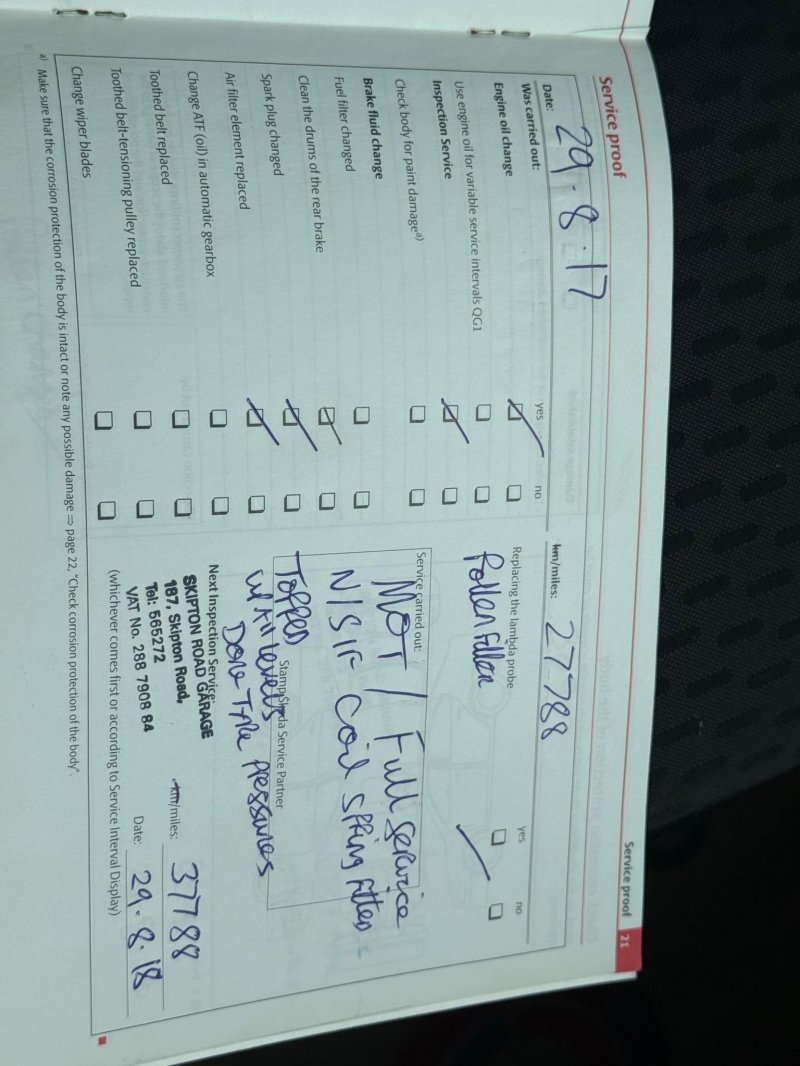 Service proof
Service proof 21
Date: 29.8.17
km/miles: 27788
Was carried out:
yes
no
Engine oil change
Use engine oil for variable service intervals QG1
Inspection Service
Check body for paint damage a)
Brake fluid change
Fuel filter changed
Clean the drums of the rear brake
Spark plug changed
Air filter element replaced
Change ATF (oil) in automatic gearbox
Toothed belt replaced
Toothed belt-tensioning pulley replaced
Change wiper blades
yes
no
Replacing the lambda probe
Pollen Filter
Service carried out:
MOT / Full Service
N/S/F Coil Spring Fitted
Topped
All levels
Stamp Skoda Service Partner
Done Tyre Pressures
Next Inspection Service:
SKIPTON ROAD GARAGE
187, Skipton Road,
Tel: 565272
VAT No. 288 7908 84
km/miles: 37788
Date: 29.8.18
(whichever comes first or according to Service Interval Display)
a) Make sure that the corrosion protection of the body is intact or note any possible damage ⇒ page 22, "Check corrosion protection of the body".